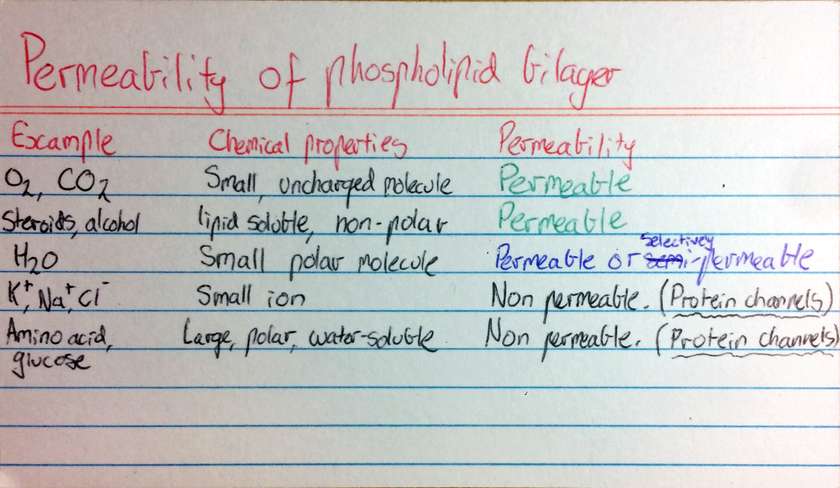 Permeability of phospholipid bilayer
Example Chemical properties Permeability
O₂, CO₂ Small, uncharged molecule Permeable
Steroids, alcohol lipid soluble, non-polar Permeable
selectively
H₂O Small polar molecule Permeable or semi-permeable
K⁺, Na⁺, Cl⁻ Small ion Non permeable. (Protein channels)
Amino acid, Large, polar, water-soluble Non permeable. (Protein channels)
glucose